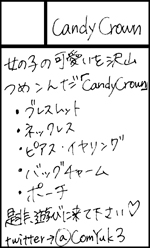 Candy Crown
女の子の可愛いを沢山
つめこんだ「Candy Crown」
・ブレスレット
・ネックレス
・ピアス・イヤリング
・バッグチャーム
・ポーチ
是非遊びに来て下さい♡
twitter→@ComYuk3